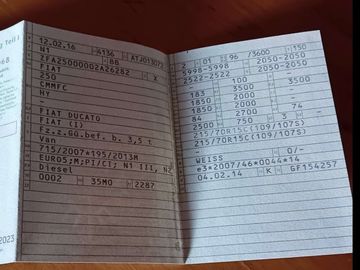 g Teil I
068
2023
12.02.16 4136 ATJ013073
N1 BB
ZFA25000002A26282 X
FIAT
250
CMMFC
HY
-
FIAT DUCATO
FIAT (I)
Fz.z.Gü.bef. b. 3,5 t
Van
715/2007*195/2013M
EURO5;M;PI/CI; N1 III, N2
Diesel
0002 35M0 2287
2 01 96 /3600 150
5998-5998 2050-2050
2522-2522 2050-2050
- 100 -
183 3500 3500
1850 2000 -
1850 2000 -
84 2700 74
2500 750 3 -
215/70R15C(109/107S)
215/70R15C(109/107S)
-
WEISS 0/-
e3*2007/46*0044*14
04.02.14 K GF154257